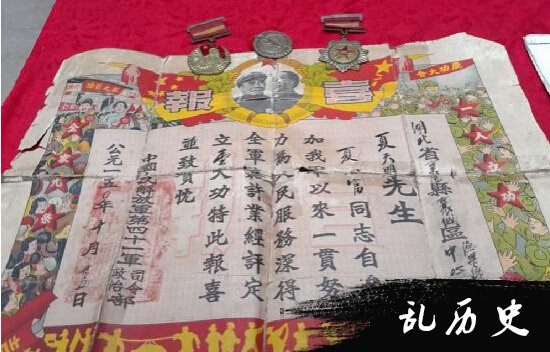 喜報
一人立功
全家光榮
湖北省 縣 區中
夏天明先生
夏 富同志自參
加我軍以來一貫努
力為人民服務深得
全軍嘉許業經評定
立 大功特此報喜
並致賀忱
中國人民解放軍第四十一軍司令部
政治部
公元一九五 年十月 日
乱历史